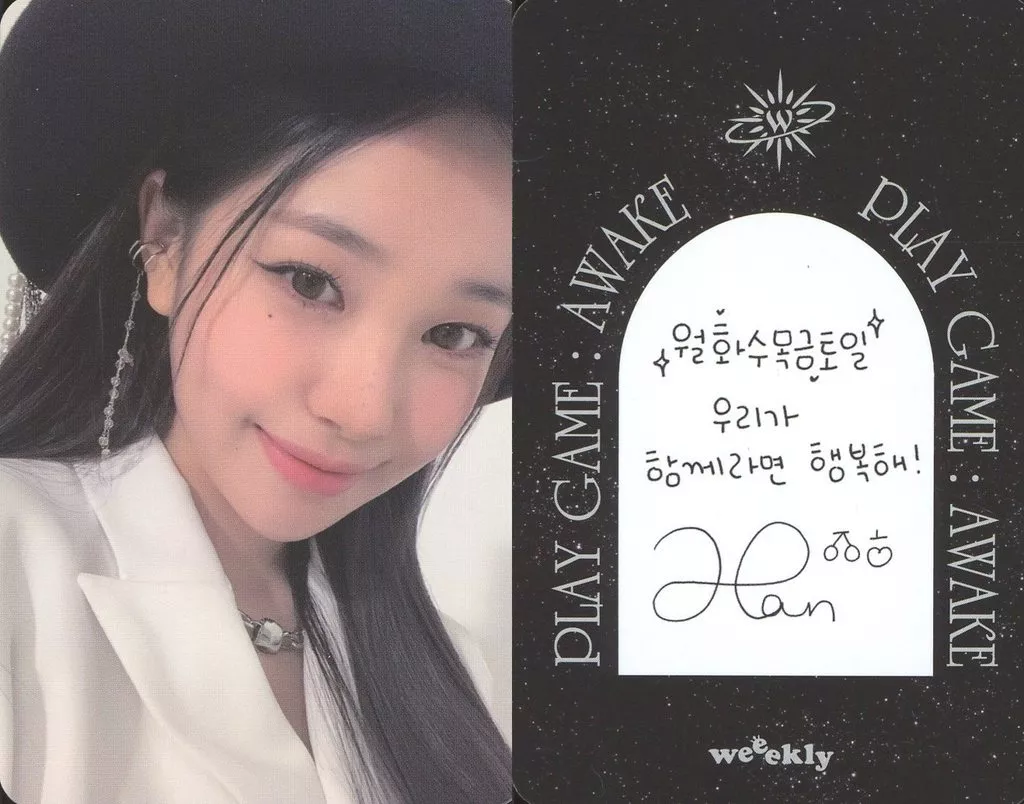 W
PLAY GAME : AWAKE
PLAY GAME : AWAKE
월화수목금토일
우리가
함께라면 행복해!
Han
weeekly